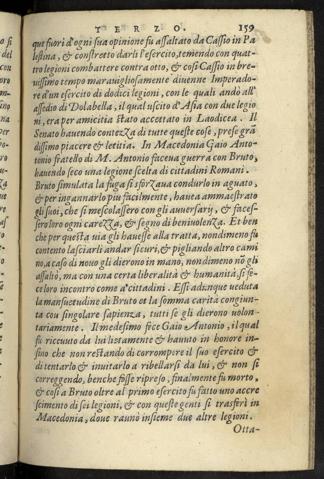 TERZO. 159
que fuori d'ogni sua opinione fu assaltato da Cassio in Pa
lestina, & constretto darli l'esercito, temendo con quat-
tro legioni combattere contra otto, & cosi Cassio in bre-
uissimo tempo marauigliosamente diuenne Imperado-
re d'un esercito di dodici legioni, con le quali andò all'
assedio di Dolabella, il qual uscito d'Asia con due legio
ni, era per amicitia stato accettato in Laodicea. Il
Senato hauendo contezza di tutte queste cose, prese grã
dissimo piacere & letitia. In Macedonia Gaio Anto-
tonio fratello di M. Antonio faceua guerra con Bruto,
hauendo seco una legione scelta di cittadini Romani.
Bruto simulata la fuga si sforzaua condurlo in aguato,
& per ingannarlo piu facilmente, hauea ammaestrato
gli suoi, che si mescolassero con gli auuersarij, & faces-
sero loro ogni carezza, & segno di beniuolenza. Et ben
che per questa uia gli hauesse alla tratta, nondimeno fu
contento lasciarli andar sicuri, & pigliando altro cami
no, a caso di nouo gli dierono in mano, nondimeno nõ gli
assaltò, ma con una certa liberalità & humanità, si fe-
ce loro incontro come a' cittadini. Essi adunque ueduta
la mansuetudine di Bruto et la somma carità congiun-
ta cou singolare sapienza, tutti se gli dierono uolon-
tariamente. Il medesimo fece Gaio Antonio, il qual
fu riceuuto da lui lietamente & hauuto in honore in-
sino che non restando di corrompere il suo esercito &
di tentarlo & inuitarlo a ribellarsi da lui, & non si
correggendo, benche fosse ripreso, finalmente fu morto,
& cosi a Bruto oltre al primo esercito fu fatto uno accre
scimento di sei legioni, & con queste genti si trasferì in
Macedonia, doue raunò insieme due altre legioni.
Otta-